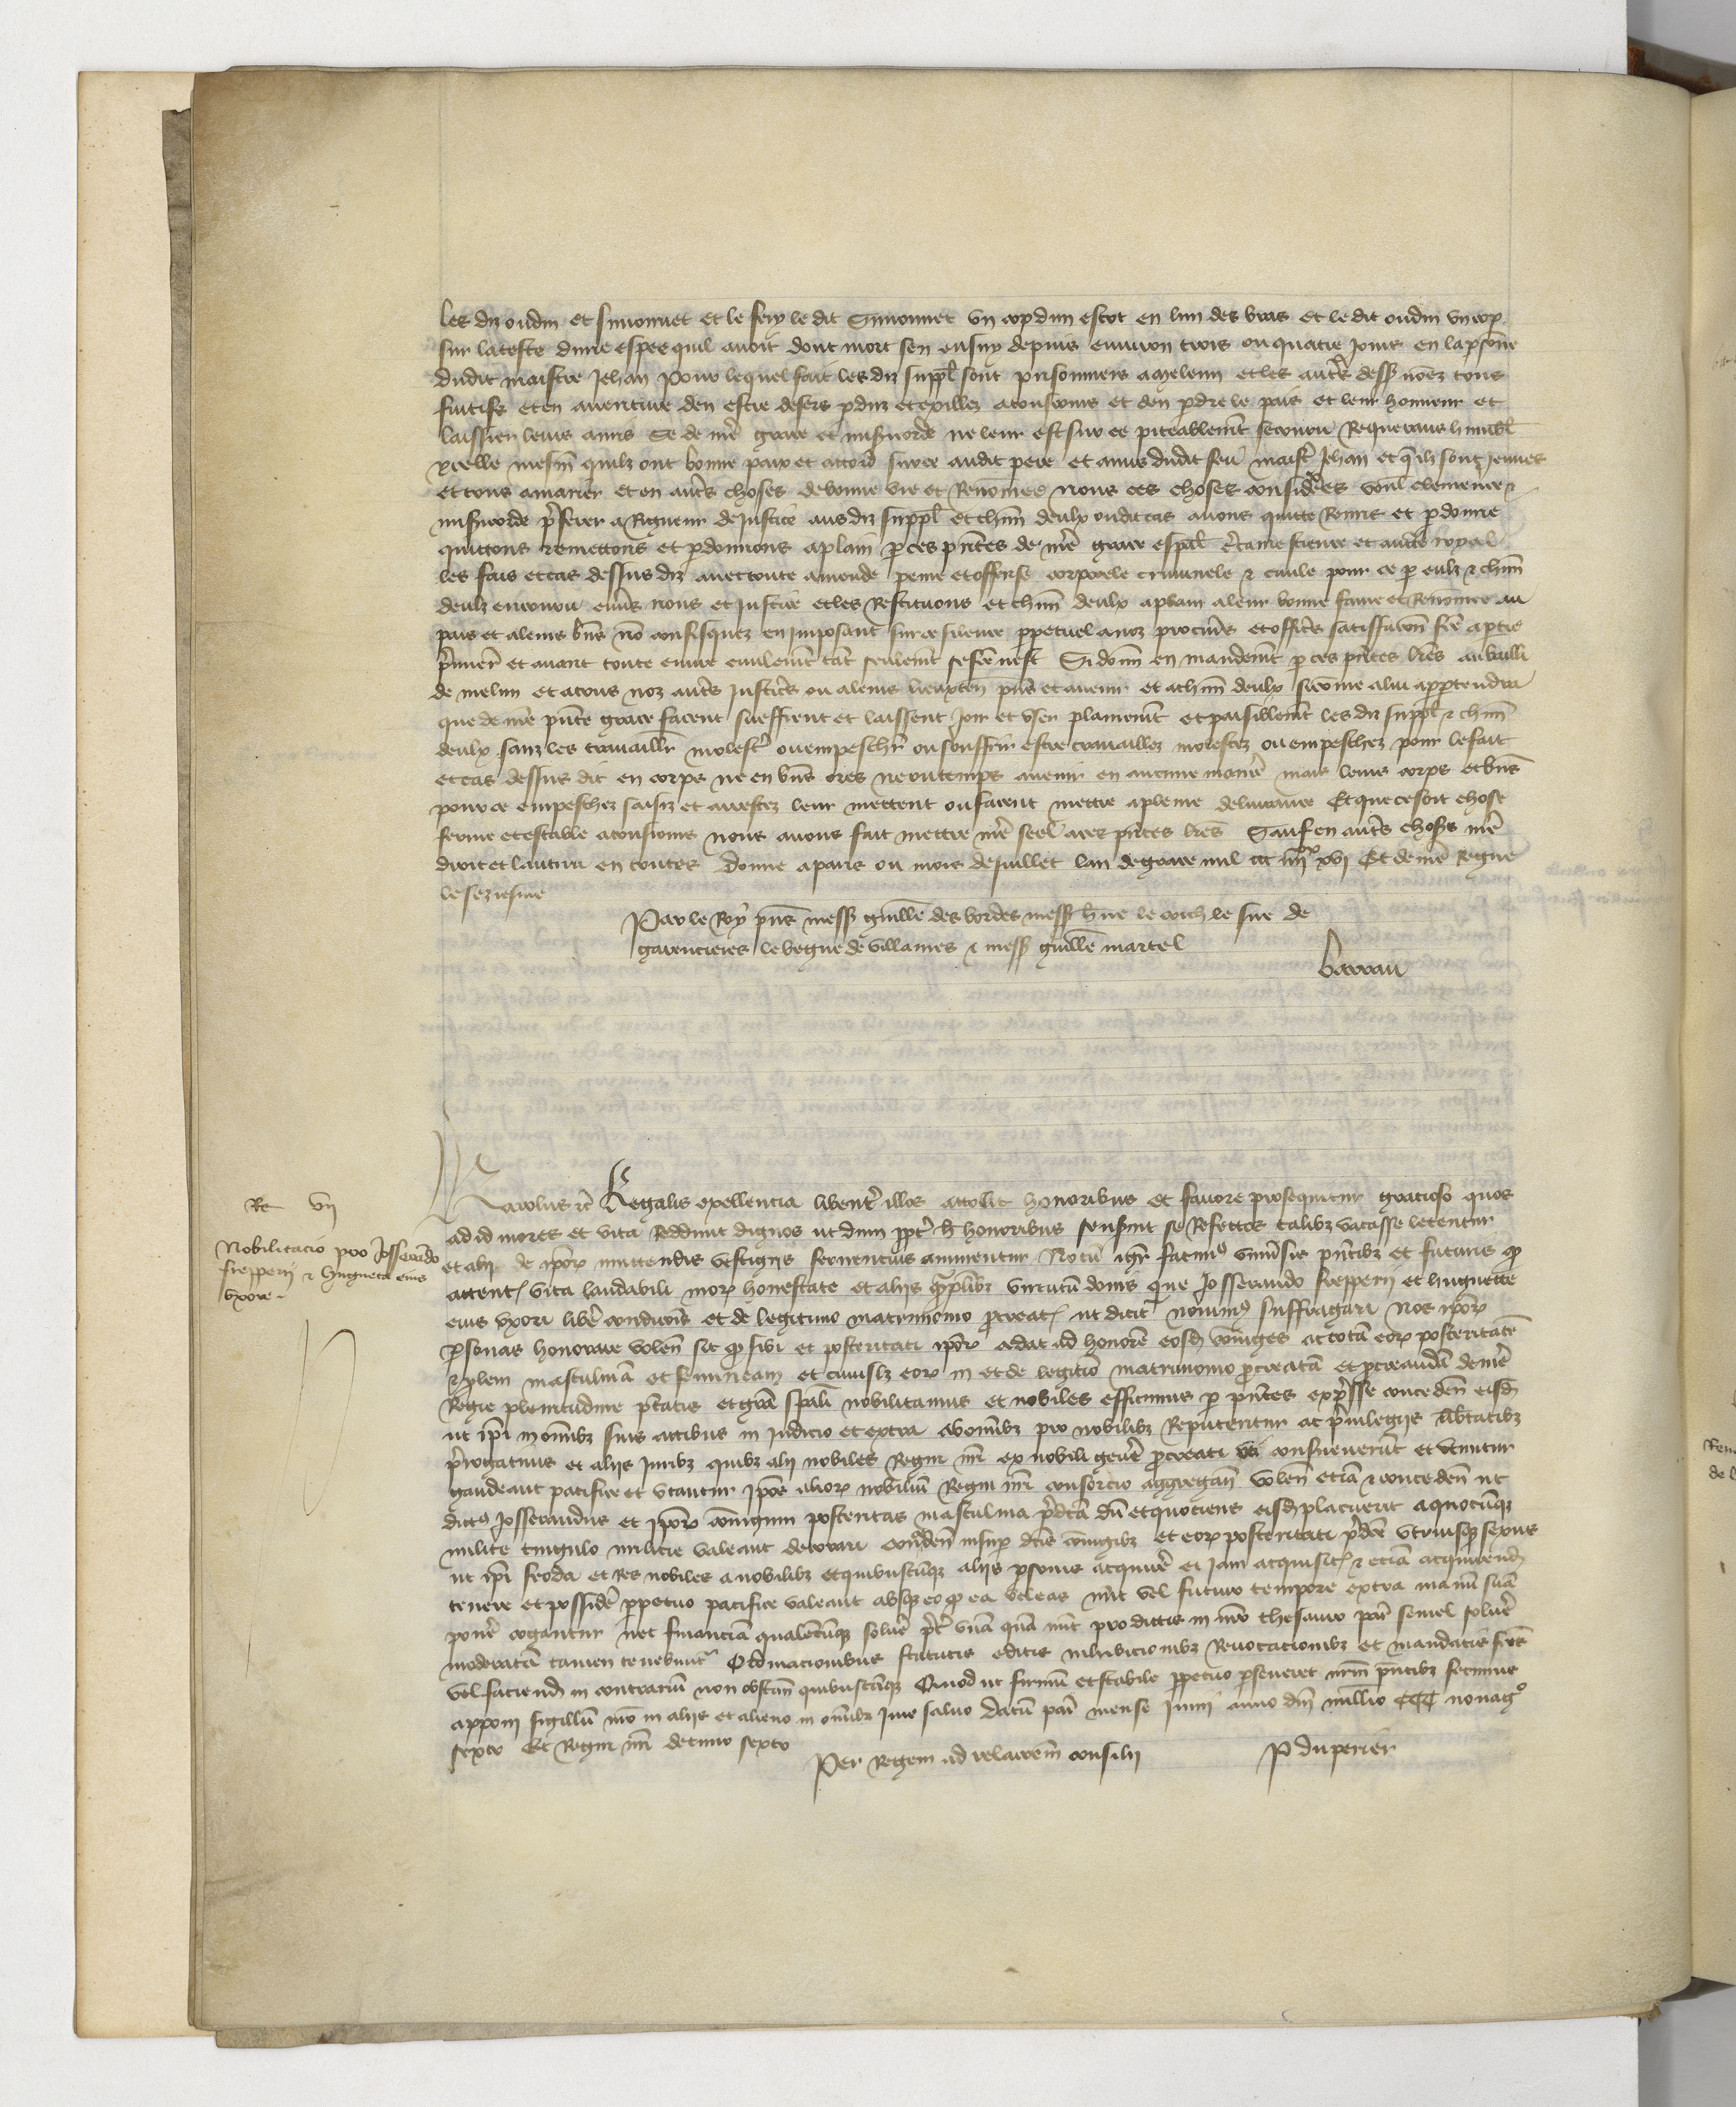 les diz oudin et simonnet et le fery le dit Simonnet un cop dun estoc en lun des bras et le dit oudin un cop
sur la teste dune espee quil avoit dont mort sen ensuy depuis environ trois ou quatre jours en la psone
dudit maistre Jehan Pour lequel fait les diz suppl sont prisonniers a meleun et les autres dess nomez tous
fuitifs et en aventure den estre desers pduz et exillez a tousiours et den pdre le pais et leur honneur et
laissier leurs amis Se de nre grace et misericorde ne leur est sur ce piteablement secouru Requerans humbl
ycelle mesm quilz ont bonne paix et accord sur ce audit pere et amis dudit feu maistr Jehan et q ilz sont jeunes
et tous a marier et en autres choses de bonne vie et Renomee nous ces choses considerees voul clemence
misericorde preferer a Rigueur de justice aus diz suppl et chun deulx oudit cas avons quitte Remis et pdonne
quittons remettons et pdonnons a plain p ces pntes de nre grace espal certaine science et aucte royal
les fais et cas dessus diz avec toute amende peine et offense corporele criminele et civile pour ce p eulz et chun
deulz encourru envers nous et justice et les Restituons et chun deulx a plain a leur bonne fame et Renomee au
pais et a leurs bns no confisquez en imposant sur ce silence ppetuel a noz procurs et officrs satisfaction fce a ptie
primier et avant toute euvre civilemt tant seulemt se fce nest Si donn en mandemt p ces pntes lres au bailli
de meleun et a tous noz autres justicrs ou a leurs lieuxten pns et avenir et a chun deulx si come a lui appartendra
que de nre pnte grace facent sueffrent et laissent joir et user plainemt et paisiblemt les diz suppl et chun
deulx sanz les travaillr molestr ou empeschr ou souffrir estre travaillez molestez ou empeschez pour le fait
et cas dessus dit en corps ne en bns ores ne ou temps avenir en aucune maniere mais leurs corps et bns
pour ce empeschez saisiz et arrestez leur mettent ou facent mettre a pleine delivrance Et que ce soit chose
ferme et estable a tousiours nous avons fait mettre nre seel a ces pntes lres Sauf en autres choses nre
droit et lautrui en toutes Donne a paris ou mois de juillet lan de grace mil ccc iiii xx xvi Et de nre Regne
le seziesme
Par le Roy pns mess guille des bordes mess h le coich le sire de
garencieres le begue de villaines et mess guille martel
barrau
Re vii
Nobilitacio pro Josserando
frepperii et hugueta eius
uxore
Karolus etc Regalis excellencia libentr illos attollit honoribus et favore prosequitur gracioso quos
ad id mores et vita Reddunt dignos ut dum ppt h honoribus senserint se Refectos talibz vacasse letentur
et alii de ipor imittendis vestigiis fervencius animentur Notu igr facim univsis pntibz et futuris q
attent vita laudabili mor honestate et aliis qmplibz virtutu donis que Josserando frepperii et huguette
eius uxori libe condicois et de legitimo matrimonio procreat ut dicit novim suffragari Nos ipor
psonas honorare volen sic q sibi et posteritati ipor cedat ad honore eosd coniuges ac tota eor posteritate
et plem masculina et femineam et cuiuslz eor in et de legitio matrimonio procreata et procreanda de nre
Regie plenitudine ptatis et gra spali nobilitamus et nobiles efficimus p pntes expsse conceden eisd
ut ipi in omibz suis actibus in judicio et extra ab omibz pro nobilibz Reputentur ac privilegiis libtatibz
prerogativis et aliis juribz quibz alii nobiles Regni nri ex nobili gene procreati uti consueverut et utuntur
gaudeant pacifice et utantur Ipos alior nobiliu Regni nri consorcio aggregan volen etia et conceden ut
dict Josserandus et ipor coniugum posteritas masculina predca du et quociens eisd placuerit a quocuqz
milite cingulo milicie valeant decorari conceden insup dcis coniugibz et eor posteritati predce utriusqz sexus
ut ipi feoda et res nobiles a nobilibz et quibuscuqz aliis psonis acquire et jam acquisit et etia acquirend
tenere et posside ppetuo pacifice valeant absqz eo q ea vel eas nuc vel futuro tempore extra manu sua
pone cogantur nec financia qualecuqz solve pret una qua nuc pro dictis in nro thesauro par semel solve
moderata tamen tenebunt Ordinacionibus statutis edictis inhibicionibz Revocacionibz et mandatis fcis
vel faciend in contrariu non obstan quibuscuqz Quod ut firmu et stabile ppetuo pseveret nrm pntibz fecimus
apponi sigillu nro in aliis et alieno in omibz jure salvo Datu par mense junii anno dni millio CCC nonago
sexto Et Regni nri decimo sexto
Per Regem ad relacoem consilii
P duperier